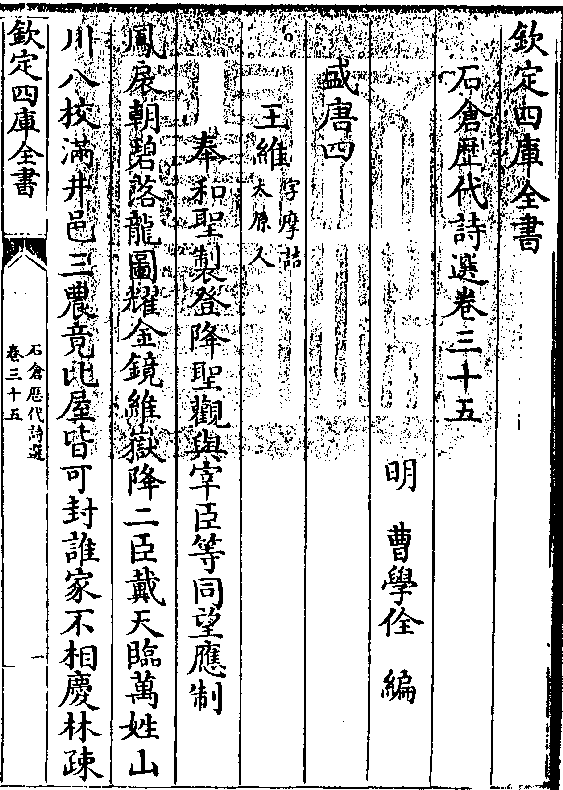 欽定四庫全書
石倉歴代詩選卷三十五
明　曹學佺　編
盛唐四
王維
字摩詰
太原人
奉和聖製登降聖觀與宰臣等同望應制
鳳扆朝碧落龍圖耀金鏡維嶽降二臣戴天臨萬姓山
川八校滿井邑三農竟比屋皆可封誰家不相慶林疎
欽定四庫全書
石倉歴代詩選
卷三十五
一